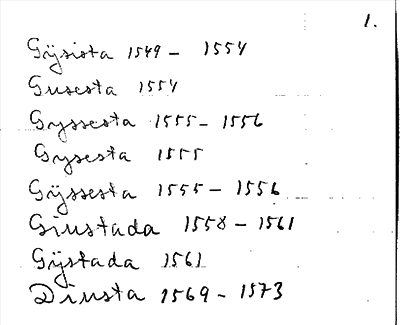 1.
Gÿsista 1549 - 1554
Gusesta 1554
Gyssesta 1555 - 1556
Gysesta 1555
Gÿssesta 1555 - 1556
Giustada 1558 - 1561
Gÿstada 1561
Diusta 1569 - 1573